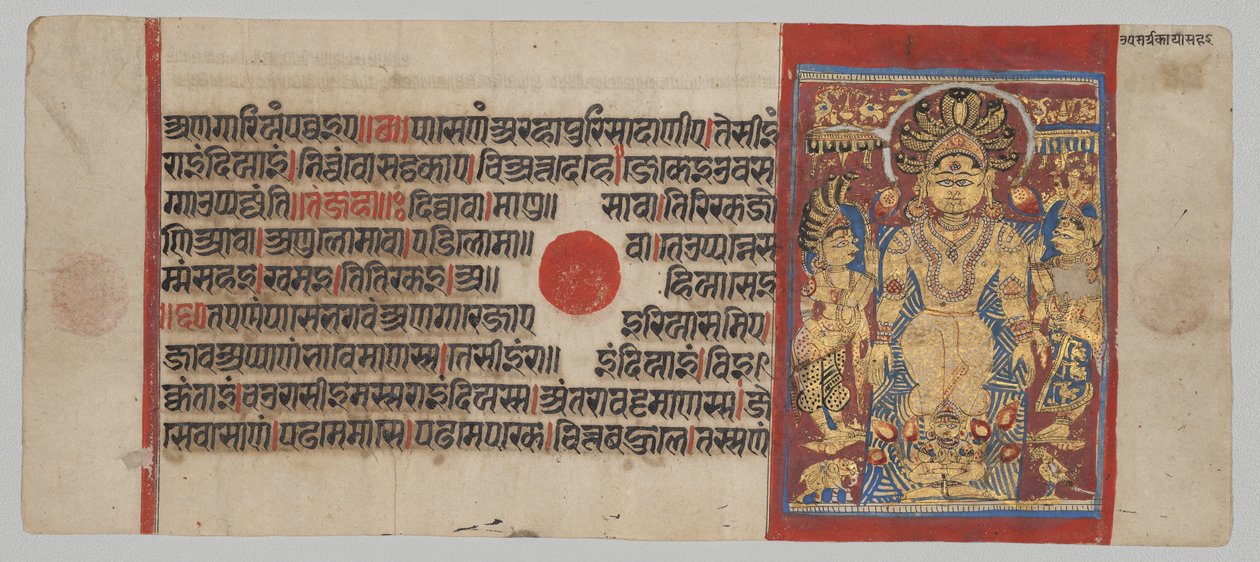 अणगारिअं पव्वइए॥छ॥पासेणं अरहा पुरिसादाणीए।तेसीइं
राइंदिआइं।निच्चं वोसठकाए।चिअत्तदेहे।जे केइ उवस
ग्गा उप्पज्जंति॥तंजहा॥ः दिव्वा वा।माणु॥ सा वा।तिरिकजो
णिआ वा।अणुलोमा वा।पडिलोमा॥ वा।ते उप्पन्ने स
म्मं सहइ।खमइ।तितिकइ।अ॥ हिआसेइ
॥छ॥तएणं पासे भगवं अणगारे जाए इरिआसमिए।
जाव अप्पाणं भावेमाणस्स।तेसीइं रा॥ इंदिआइं।विइ
क्कंताइं।चउरासीइमस्स राइंदिअस्स।अंतरा वट्टमाणस्स।जे
से वासाणं।पढमे मासे।पढमे पके।चित्तबहुले।तस्सणं